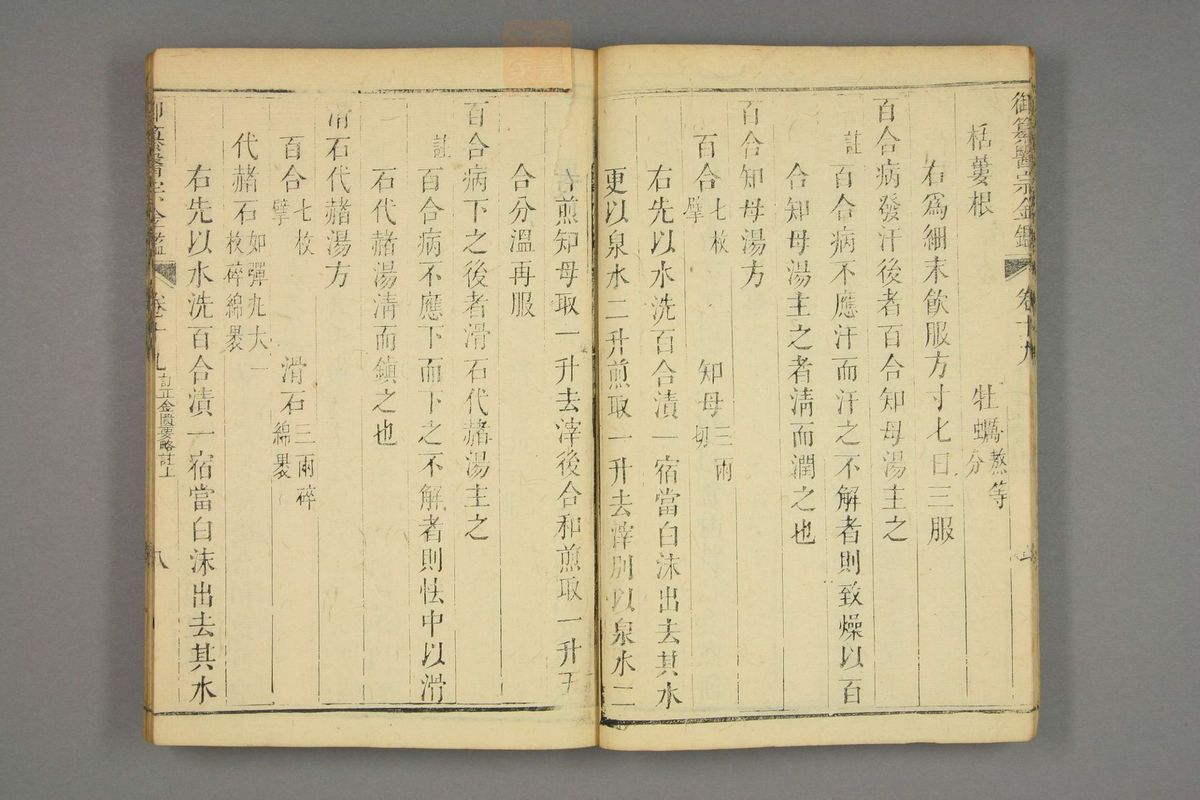 御纂醫宗金鑑 卷十九
栝蔞根 牡蠣熬等分
右爲細末飲服方寸匕日三服
百合病發汗後者百合知母湯主之
註百合病不應汗而汗之不解者則致燥以百
合知母湯主之者清而潤之也
百合知母湯方
百合七枚擘 知母三兩切
右先以水洗百合漬一宿當白沫出去其水
更以泉水二升煎取一升去滓別以泉水二
升煎知母取一升去滓後合和煎取一升五
合分溫再服
百合病下之後者滑石代赭湯主之
註百合病不應下而下之不解者則怯中以滑
石代赭湯清而鎮之也
滑石代赭湯方
百合七枚擘 滑石三兩碎綿裹
代赭石如彈丸大一枚碎綿裹
右先以水洗百合漬一宿當白沫出去其水
御纂醫宗金鑑 卷十九 訂正金匱要略註上 八